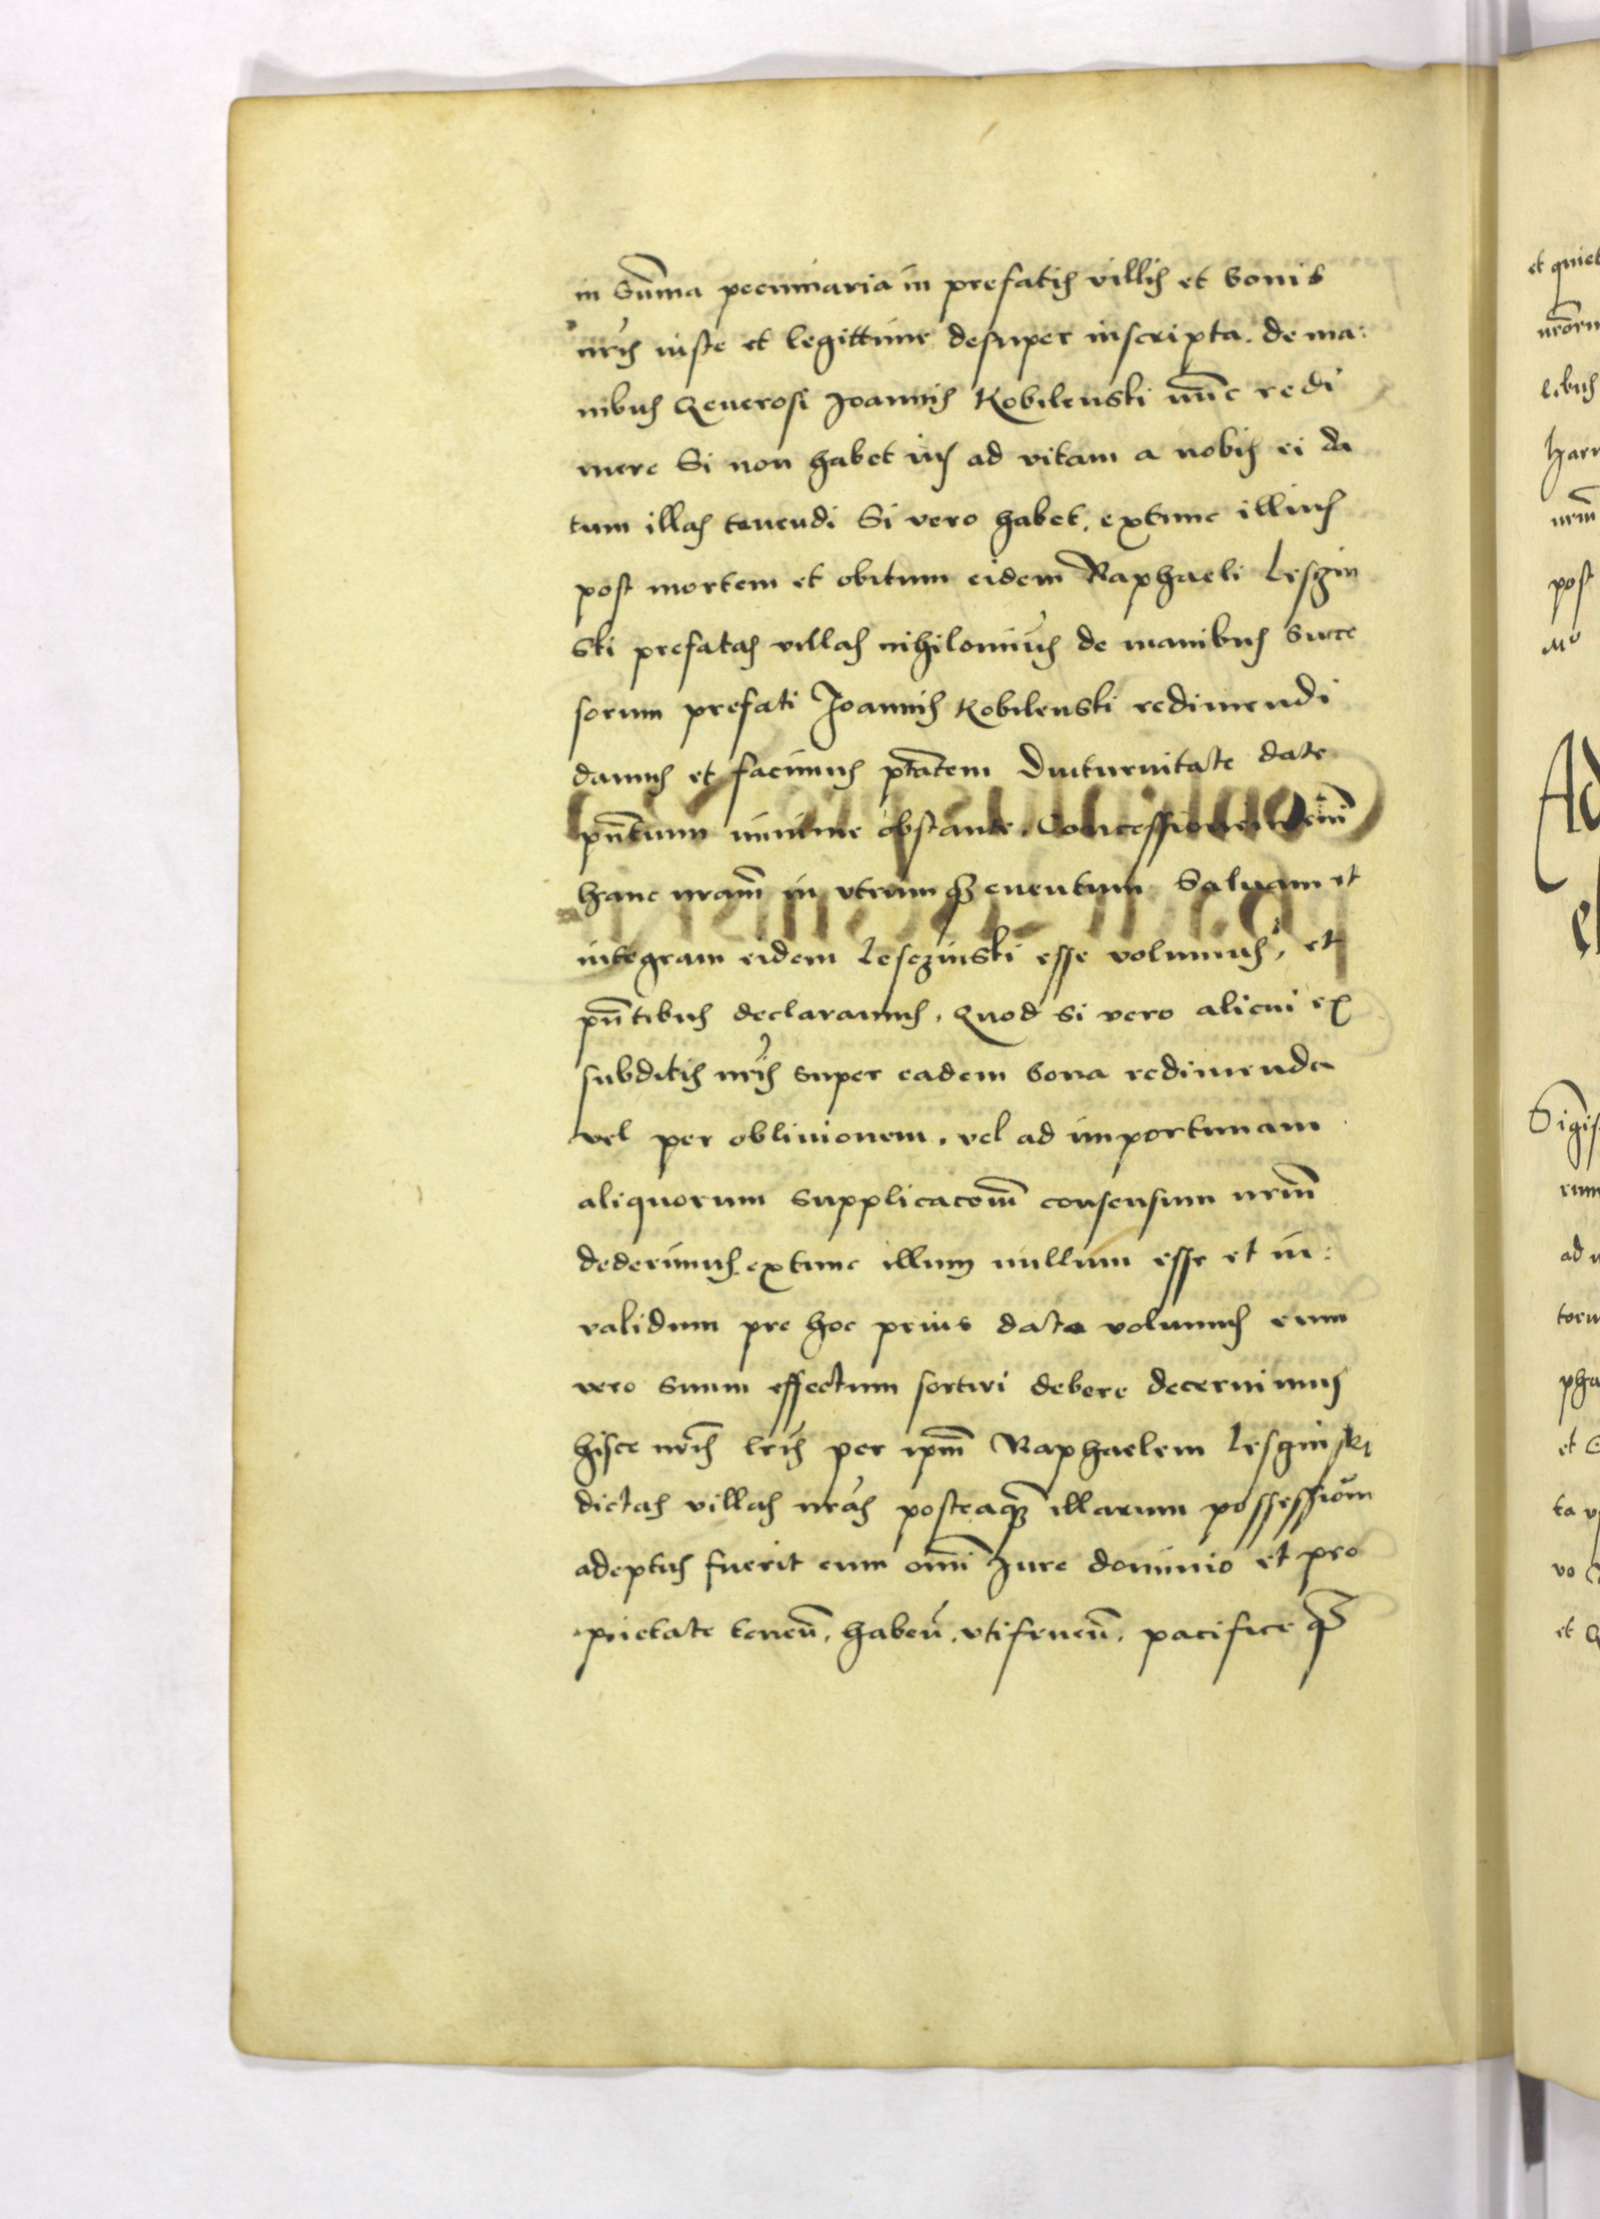 in Sum̄a pecuniaria in prefatis villis et bonis
nr̄is iuste et legittime desuper inscripta. de ma:
nibus Generosi Joannis Kobilenski nūnc redi
mere Si non habet ius ad vitam a nobis ei da
tum illas tenendi Si vero habet, extunc illius
post mortem et obitum eidem Raphaeli Lesgin
ski prefatas villas nihilominus de manibus succe
sorum prefati Joannis Kobilenski redimendi
damus et facimus ptātem Diuturnitate date
pn̄tium minime obstante. Concessionem
hanc nram̄ in vtrumq3 euentum Saluam et
integram eidem Lesczinski esse volumus, et
pn̄tibus declaramus. Quod si vero alicui ex
subditis nr̄is super eadem bona redimenda
vel per obliuionem. vel ad importunam
aliquorum supplicacōem consensum nrm̄
dederimus. extunc illum nullum esse et in:
validum pre hoc prius dato volumus eum
vero suum effectum sortiri debere decernimus
hisce nr̄is lr̄is per ipm̄ Raphaelem Lesginski
dictas villas nrās posteaq3 illarum possessiom̄
adeptus fuerit cum omī Jure dominio et pro
prietate teneñ. habeñ. vtifrueñ. pacifice q3
et quiet
post
Ad
Sigis
pha